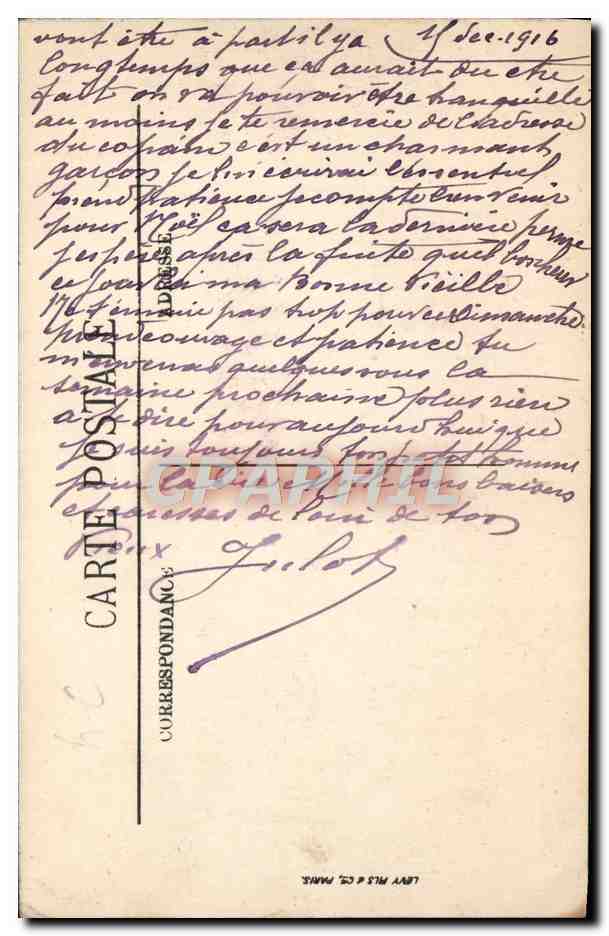 vont être à part il y a 15 dec. 1916
longtemps que ca aurait du etre
fait on va pouvoir être tranquille
au moins je te remercie de l'adresse
du copain c'est un charmant
garçon je lui écrirai l'essentiel
prend patience je compte bien venir
pour Noël ca sera la dernière perme
j'espère après la fuite quel bonheur
ce jour la ma Bonne Vieille
Ne t'ennuie pas trop pour ce dimanche
prend courage et patience tu
m'enverras quelques sous la
semaine prochaine plus rien
a te dire pour aujourd'hui que
je suis toujours ton petit homme
pour la vie mille bons baisers
caresses de loin de ton
Julot
CARTE POSTALE
CORRESPONDANCE
ADRESSE
CPAPHIL
LEVY FILS & Cie, PARIS.